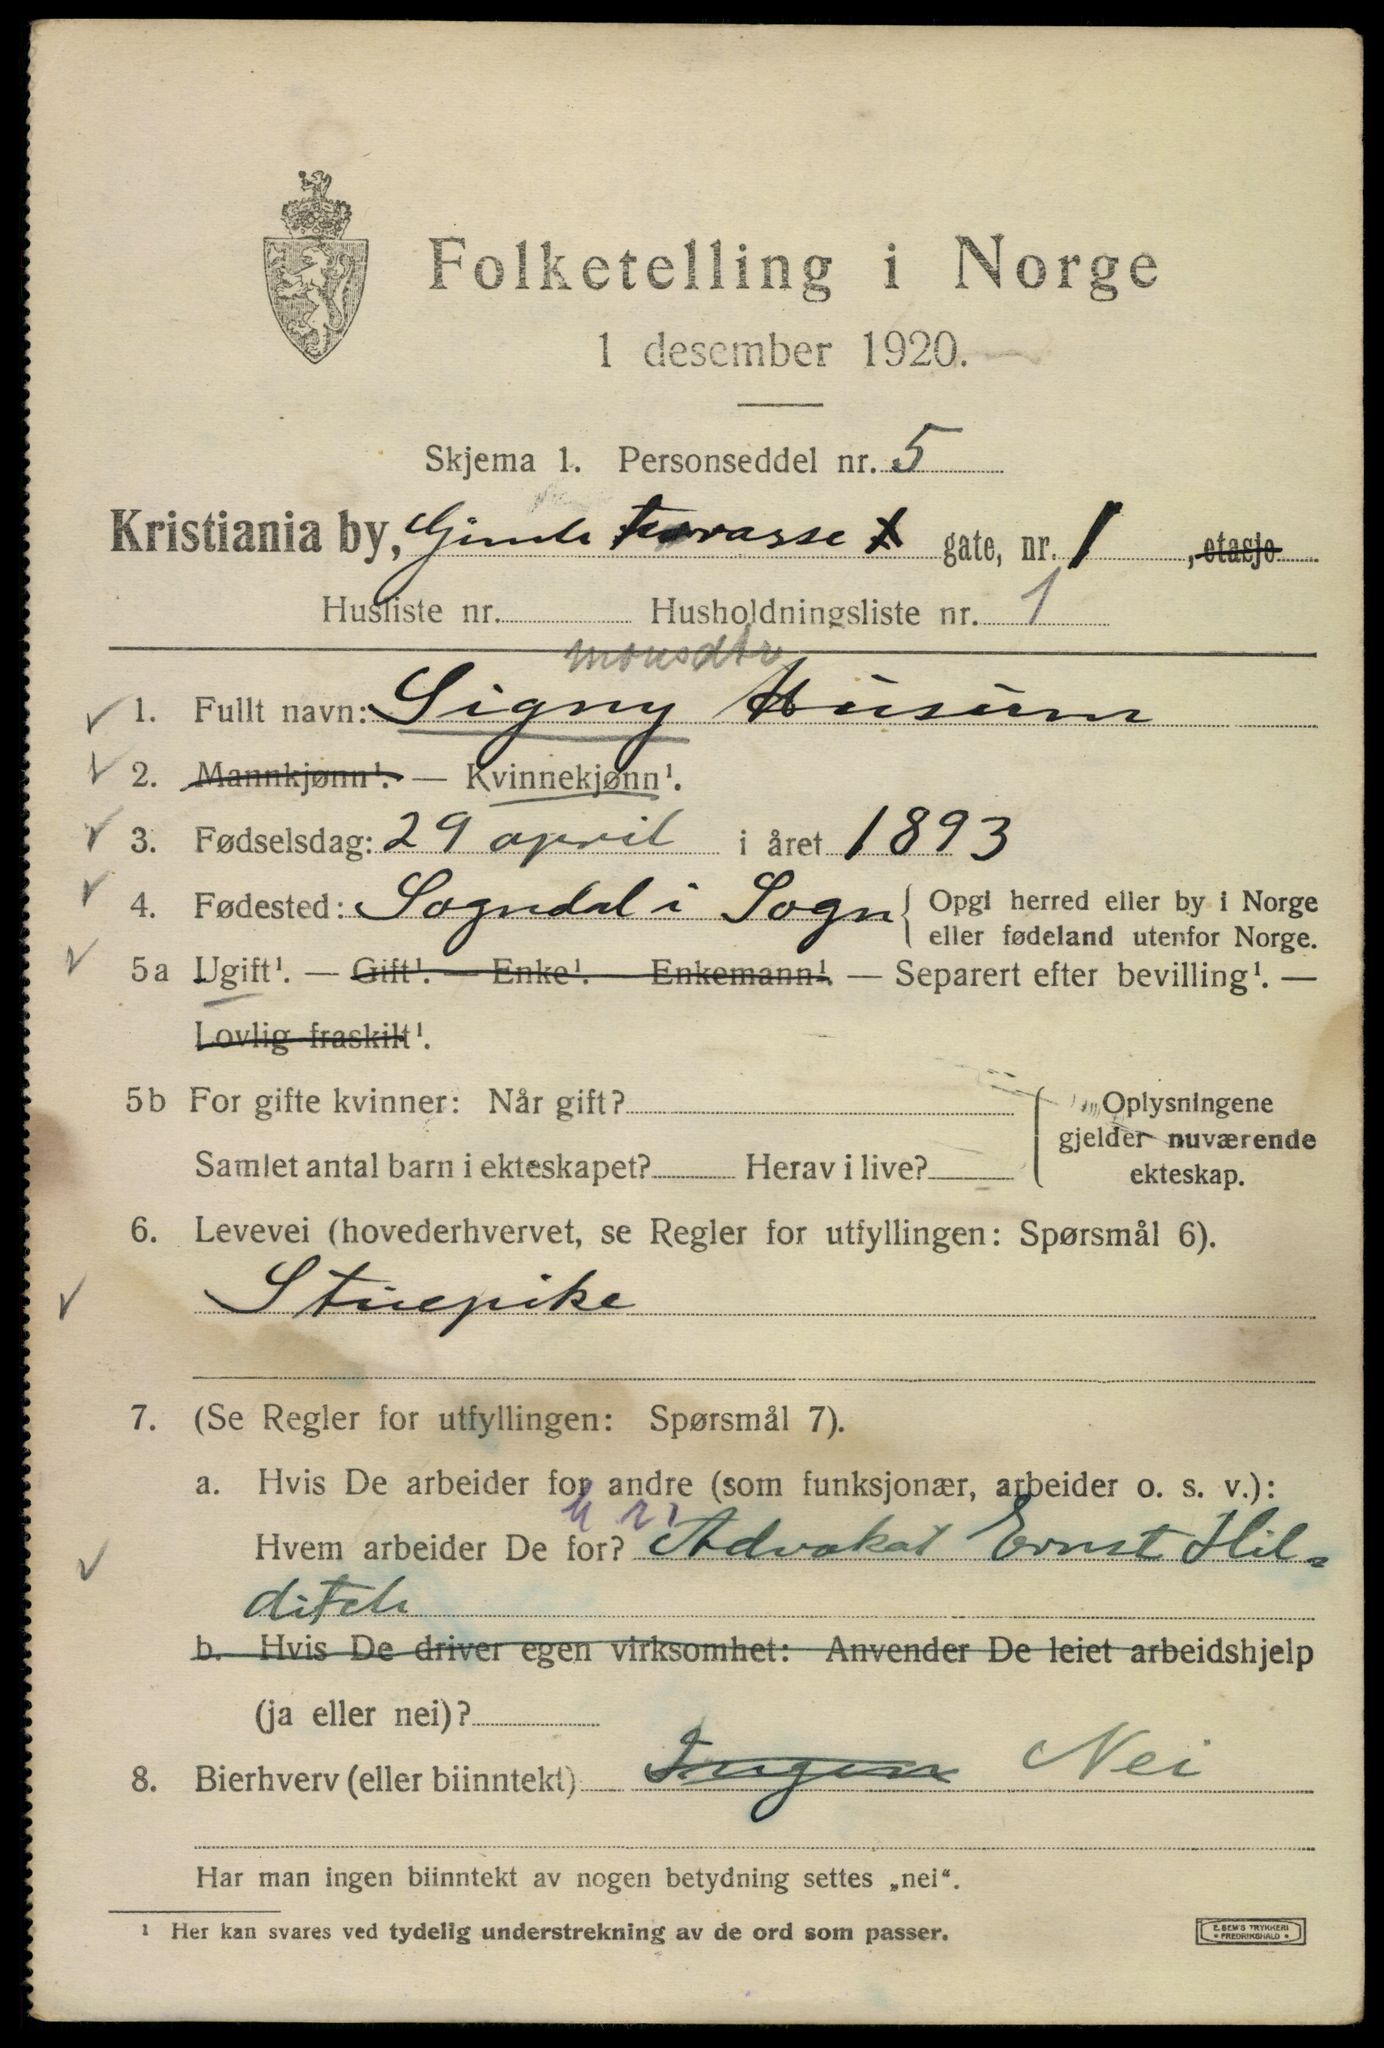 Folketelling i Norge
1 desember 1920.
Skjema 1. Personseddel nr. 5
Kristiania by, Gimle terrasse 1 gate, nr. 1, etasje
Husliste nr. Husholdningsliste nr. 1
monsdtr
1. Fullt navn: Signy Husum
2. Mannkjønn¹. — Kvinnekjønn¹.
3. Fødselsdag: 29 april i året 1893
4. Fødested: Sogndal i Sogn { Opgi herred eller by i Norge
eller fødeland utenfor Norge.
5a Ugift¹. — Gift¹. — Enke¹. Enkemann¹. — Separert efter bevilling¹. —
Lovlig fraskilt¹.
5b For gifte kvinner: Når gift? { Oplysningene
gjelder nuværende
Samlet antal barn i ekteskapet? Herav i live? ekteskap.
6. Levevei (hovederhvervet, se Regler for utfyllingen: Spørsmål 6).
Stuepike
7. (Se Regler for utfyllingen: Spørsmål 7).
a. Hvis De arbeider for andre (som funksjonær, arbeider o. s. v.):
Hvem arbeider De for? Advokat Ernst Hil-
ditch
b. Hvis De driver egen virksomhet: Anvender De leiet arbeidshjelp
(ja eller nei)?
8. Bierhverv (eller biinntekt) Ingen Nei
Har man ingen biinntekt av nogen betydning settes „nei“.
¹ Her kan svares ved tydelig understrekning av de ord som passer.
E. SEM'S TRYKKERI
• FREDRIKSHALD •